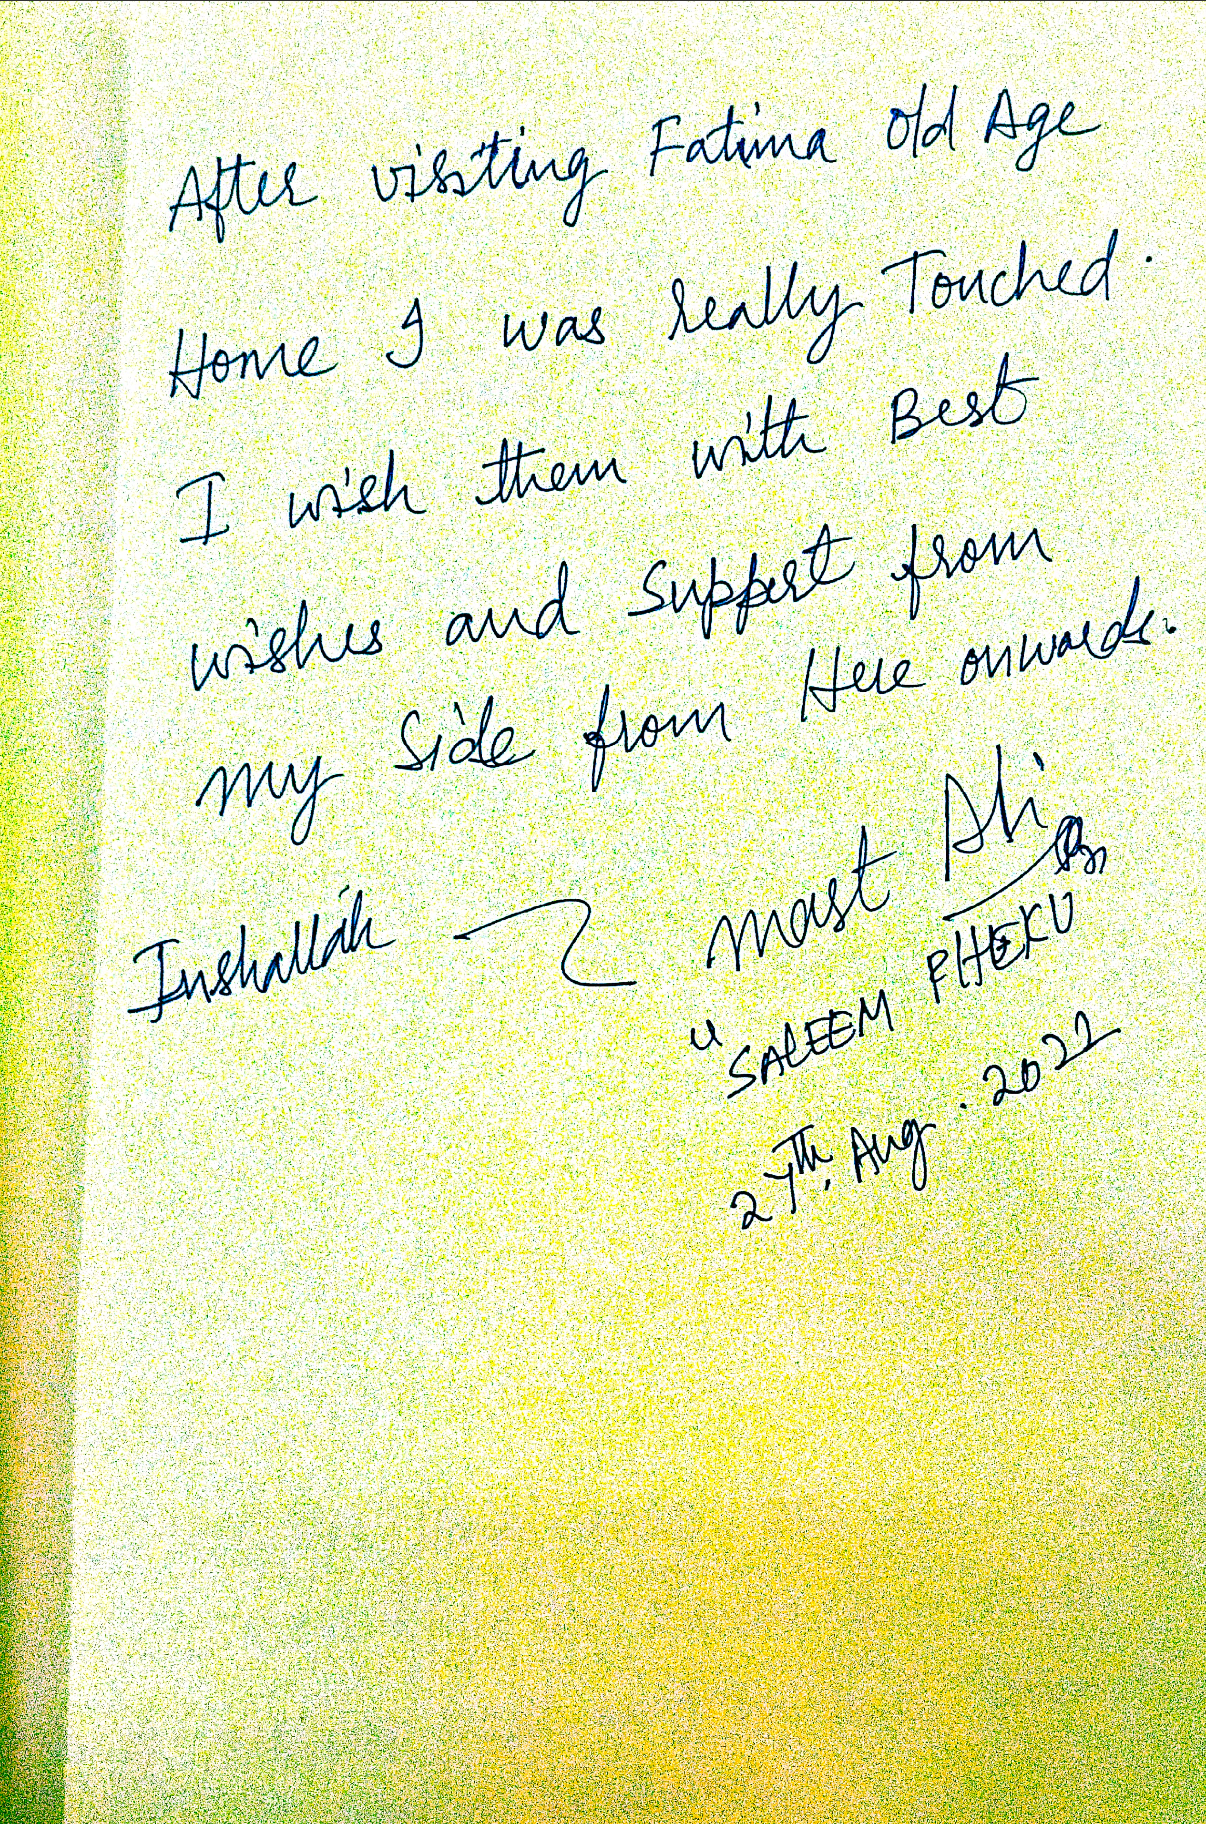 After visiting Fatima Old Age
Home I was really Touched.
I wish them with Best
wishes and Support from
my Side from Here onwards.
Inshallah
Mast Ali
"SALEEM PHEKU
27th, Aug. 2022